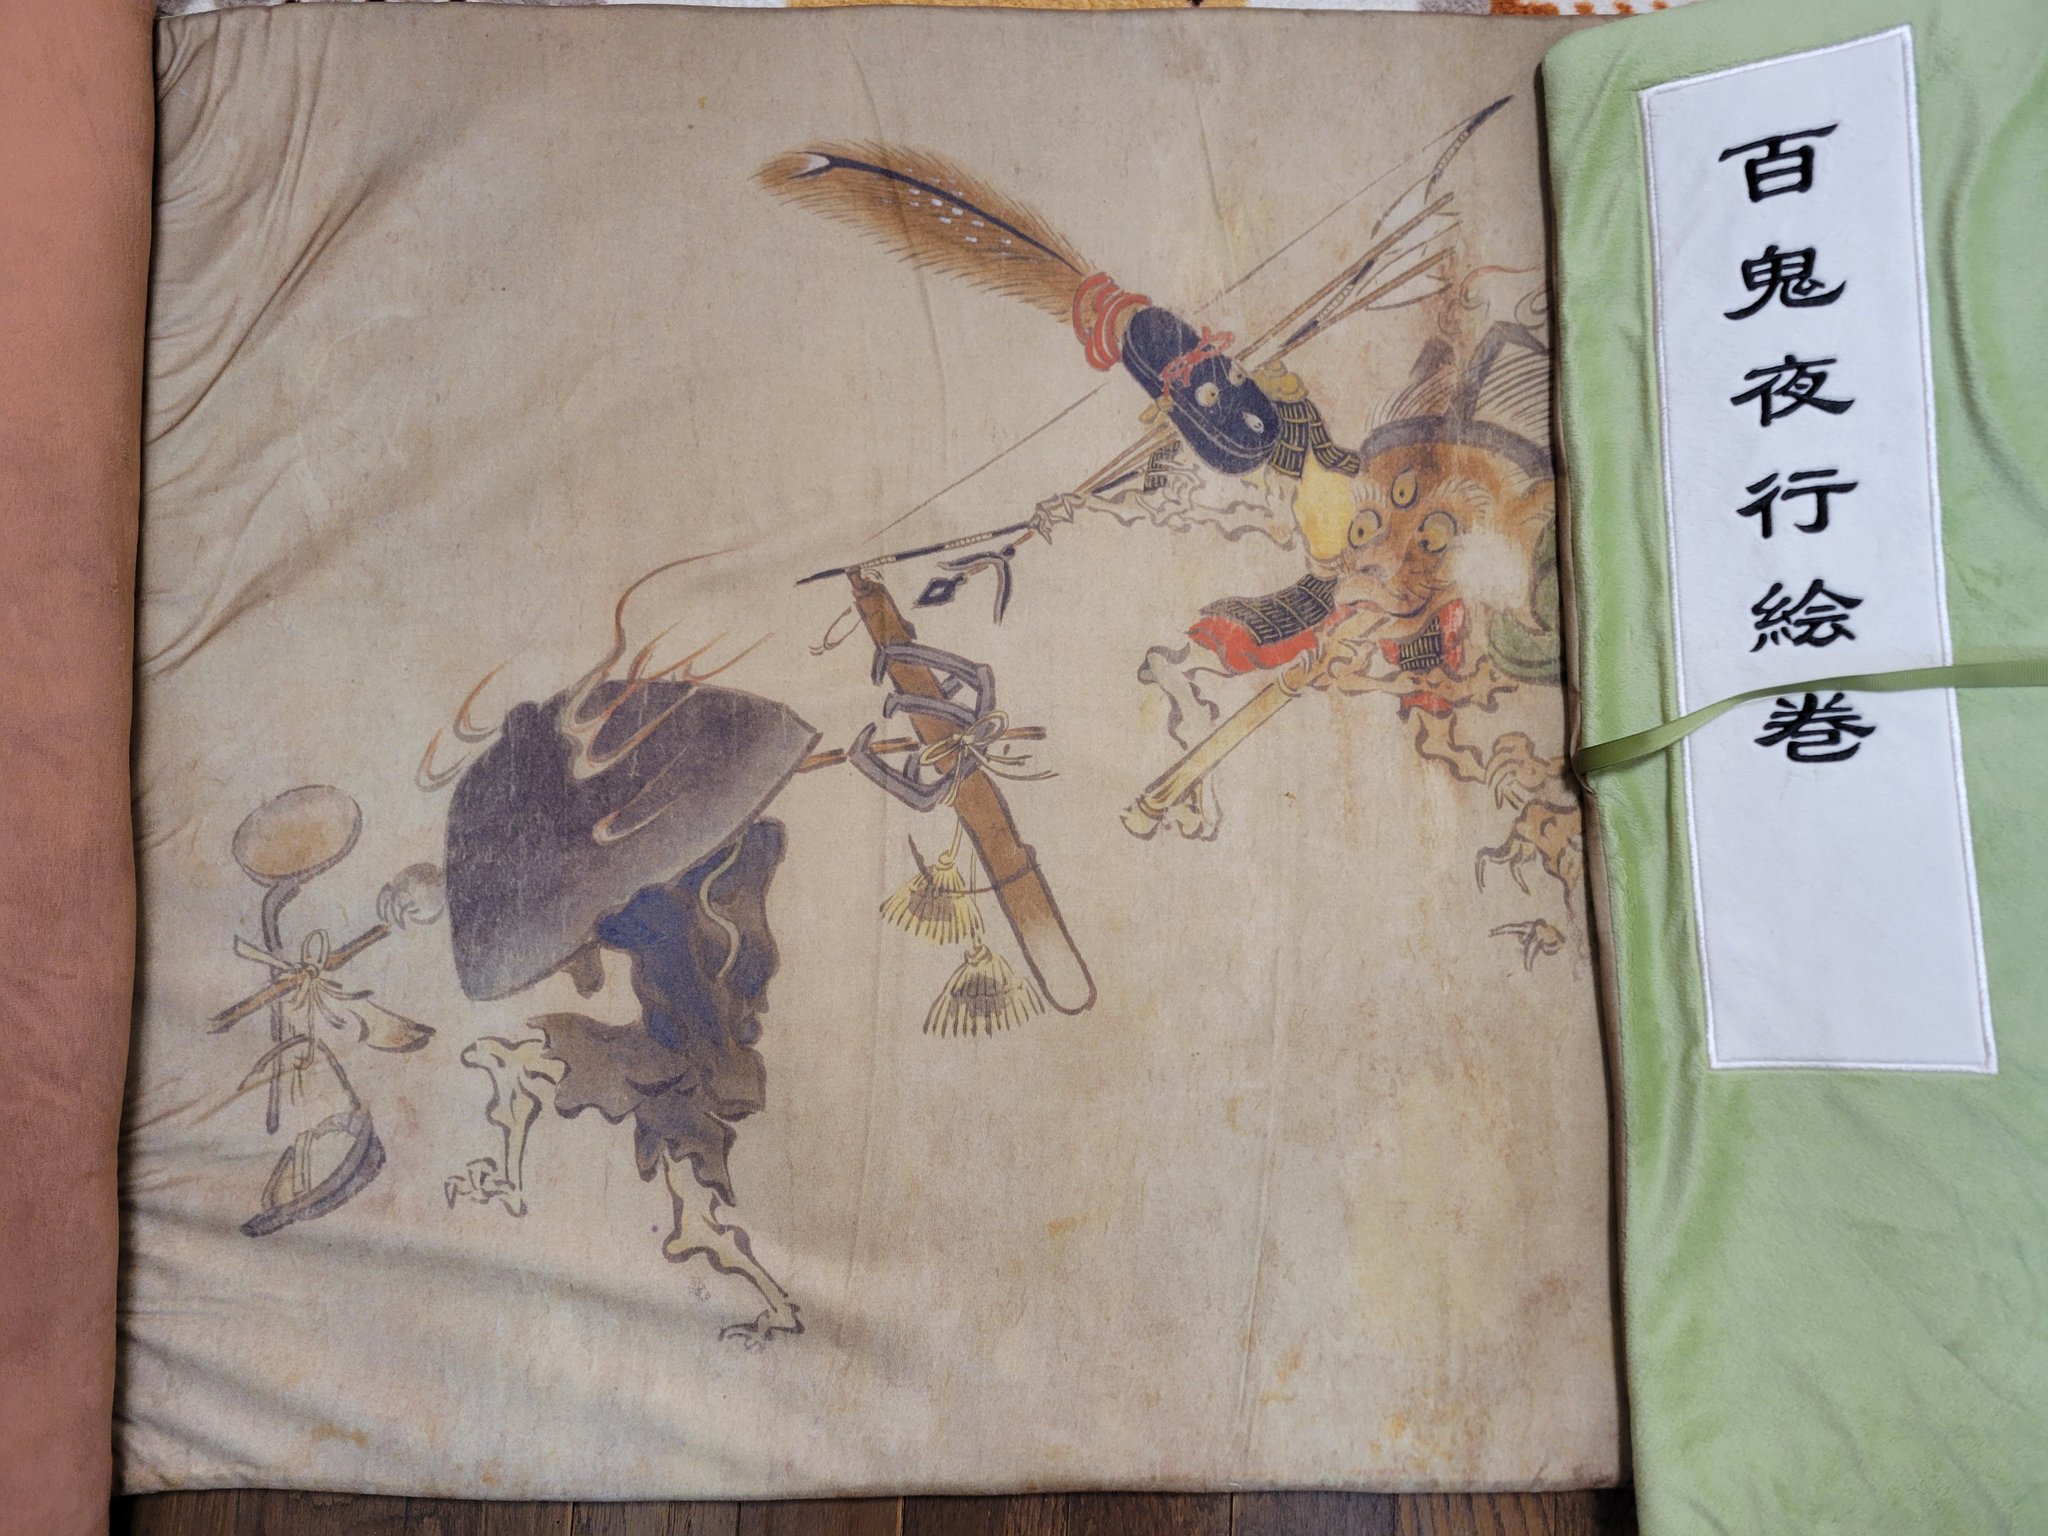 百鬼夜行絵巻